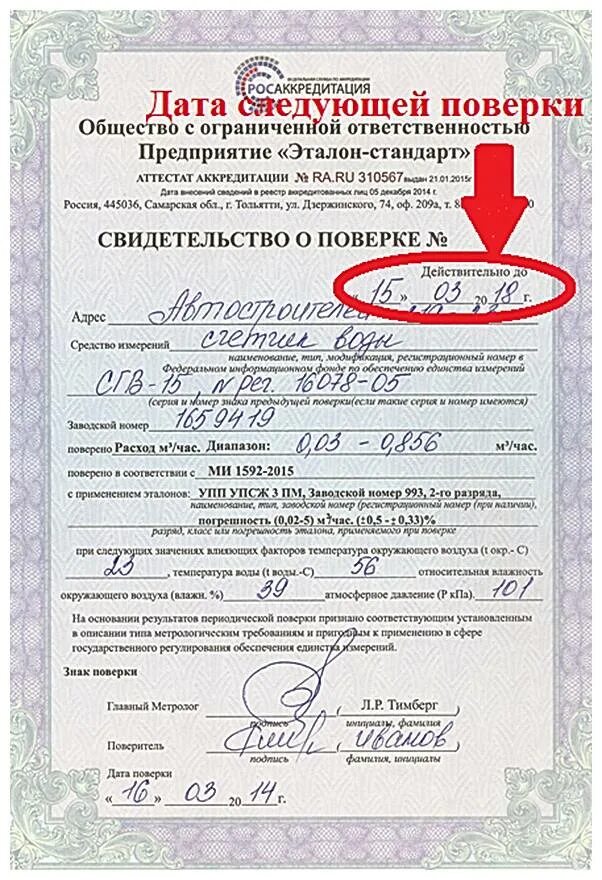 ФЕДЕРАЛЬНАЯ СЛУЖБА ПО АККРЕДИТАЦИИ
РОСАККРЕДИТАЦИЯ
Дата следующей поверки
Общество с ограниченной ответственностью
Предприятие «Эталон-стандарт»
АТТЕСТАТ АККРЕДИТАЦИИ № RA.RU 310567 выдан 21.01.2015г
Дата внесений сведений в реестр аккредитованных лиц 05 декабря 2014 г.
Россия, 445036, Самарская обл., г. Тольятти, ул. Дзержинского, 74, оф. 209а, т. 8
СВИДЕТЕЛЬСТВО О ПОВЕРКЕ №
Действительно до
«15» 03 2018 г.
Адрес Автостроителей
Средство измерений счетчик воды
наименование, тип, модификация, регистрационный номер в
Федеральном информационном фонде по обеспечению единства измерений
СГВ-15, № рег. 16078-05
(серия и номер знака предыдущей поверки(если такие серия и номер имеются)
Заводской номер 1659419
поверено Расход м³/час. Диапазон: 0,03 - 0,856 м³/час.
поверено в соответствии с МИ 1592-2015
с применением эталонов: УПП УПСЖ 3 ПМ, Заводской номер 993, 2-го разряда,
наименование, тип, заводской номер (регистрационный номер (при наличии),
погрешность (0,02-5) м³/час. (±0,5 -± 0,33)%
разряд, класс или погрешность эталона, применяемого при поверке
при следующих значениях влияющих факторов температура окружающего воздуха (t окр.- С)
23, температура воды (t воды.-С) 56 относительная влажность
окружающего воздуха (влажн. %) 39 атмосферное давление (Р кПа). 101
На основании результатов периодической поверки признано соответствующим установленным
в описании типа метрологическим требованиям и пригодным к применению в сфере
государственного регулирования обеспечения единства измерений.
Знак поверки
Главный Метролог , Л.Р. Тимберг
подпись инициалы, фамилия
Поверитель , Иванов,
подпись фамилия, инициалы
Дата поверки
«16» 03 2014 г.